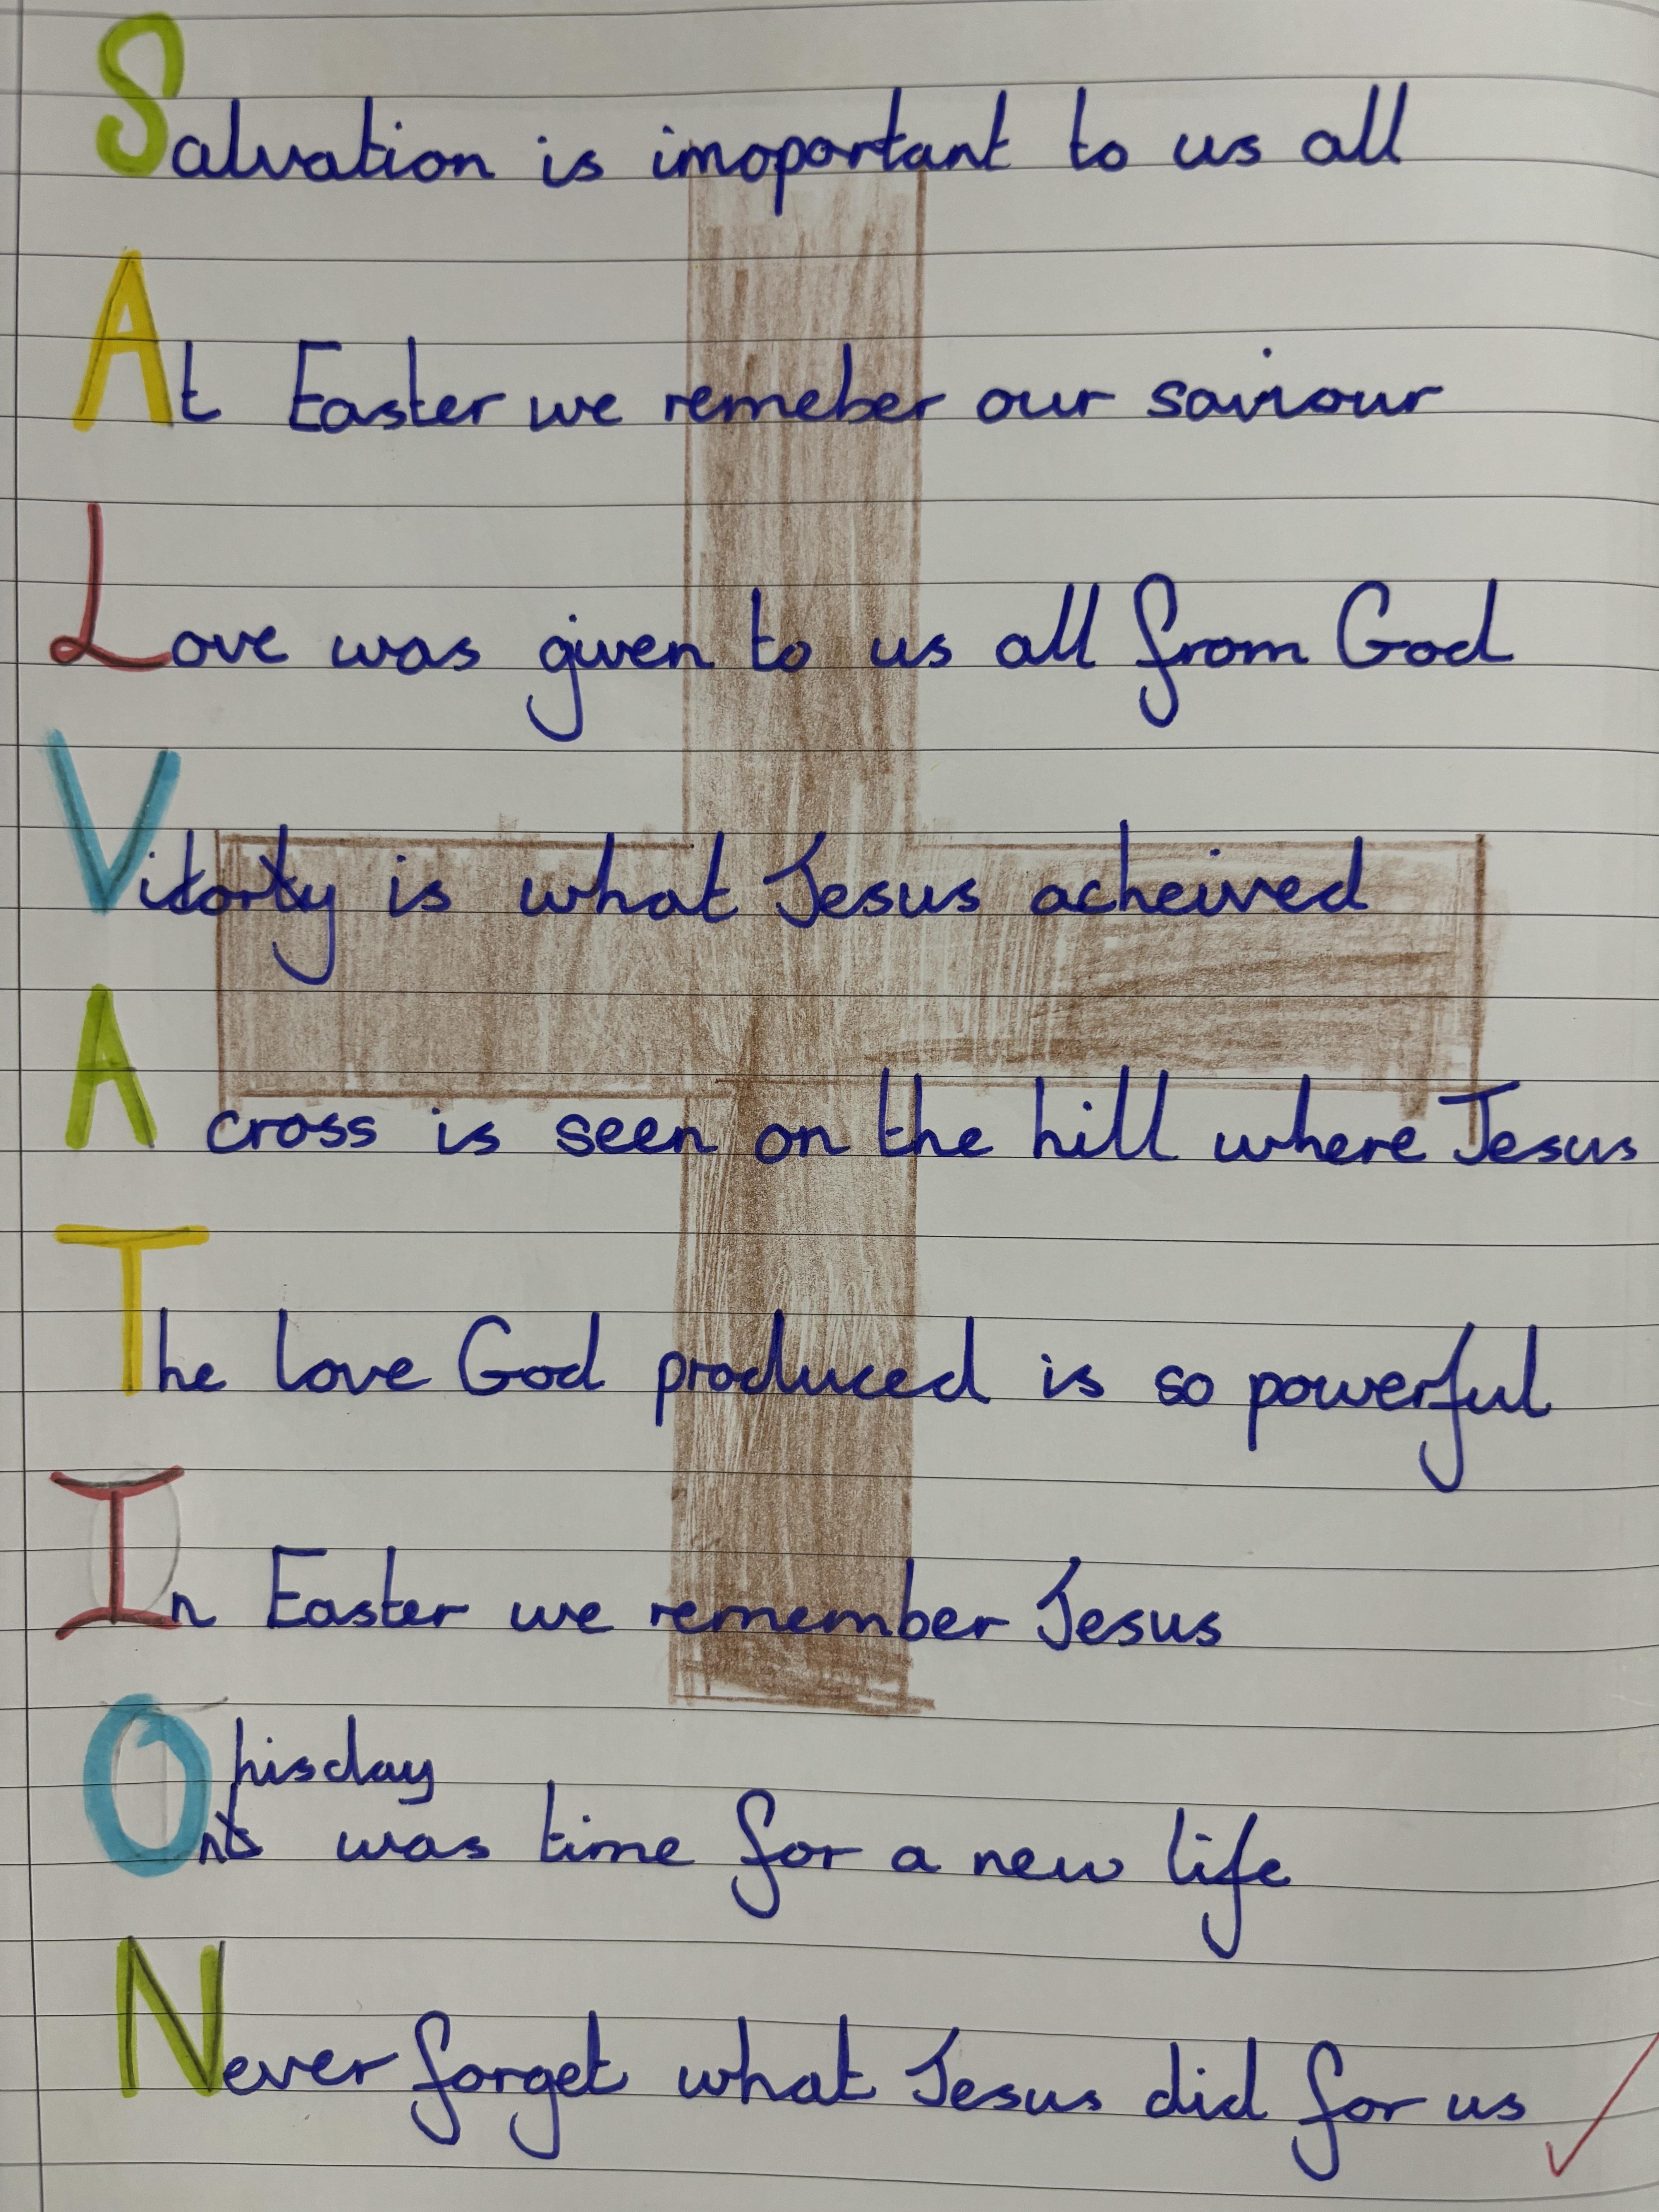 Salvation is imoportant to us all
At Easter we remeber our saviour
Love was given to us all from God
Vitorty is what Jesus acheived
A cross is seen on the hill where Jesus
The love God produced is so powerful
In Easter we remember Jesus
hisday
On was time for a new life
Never forget what Jesus did for us